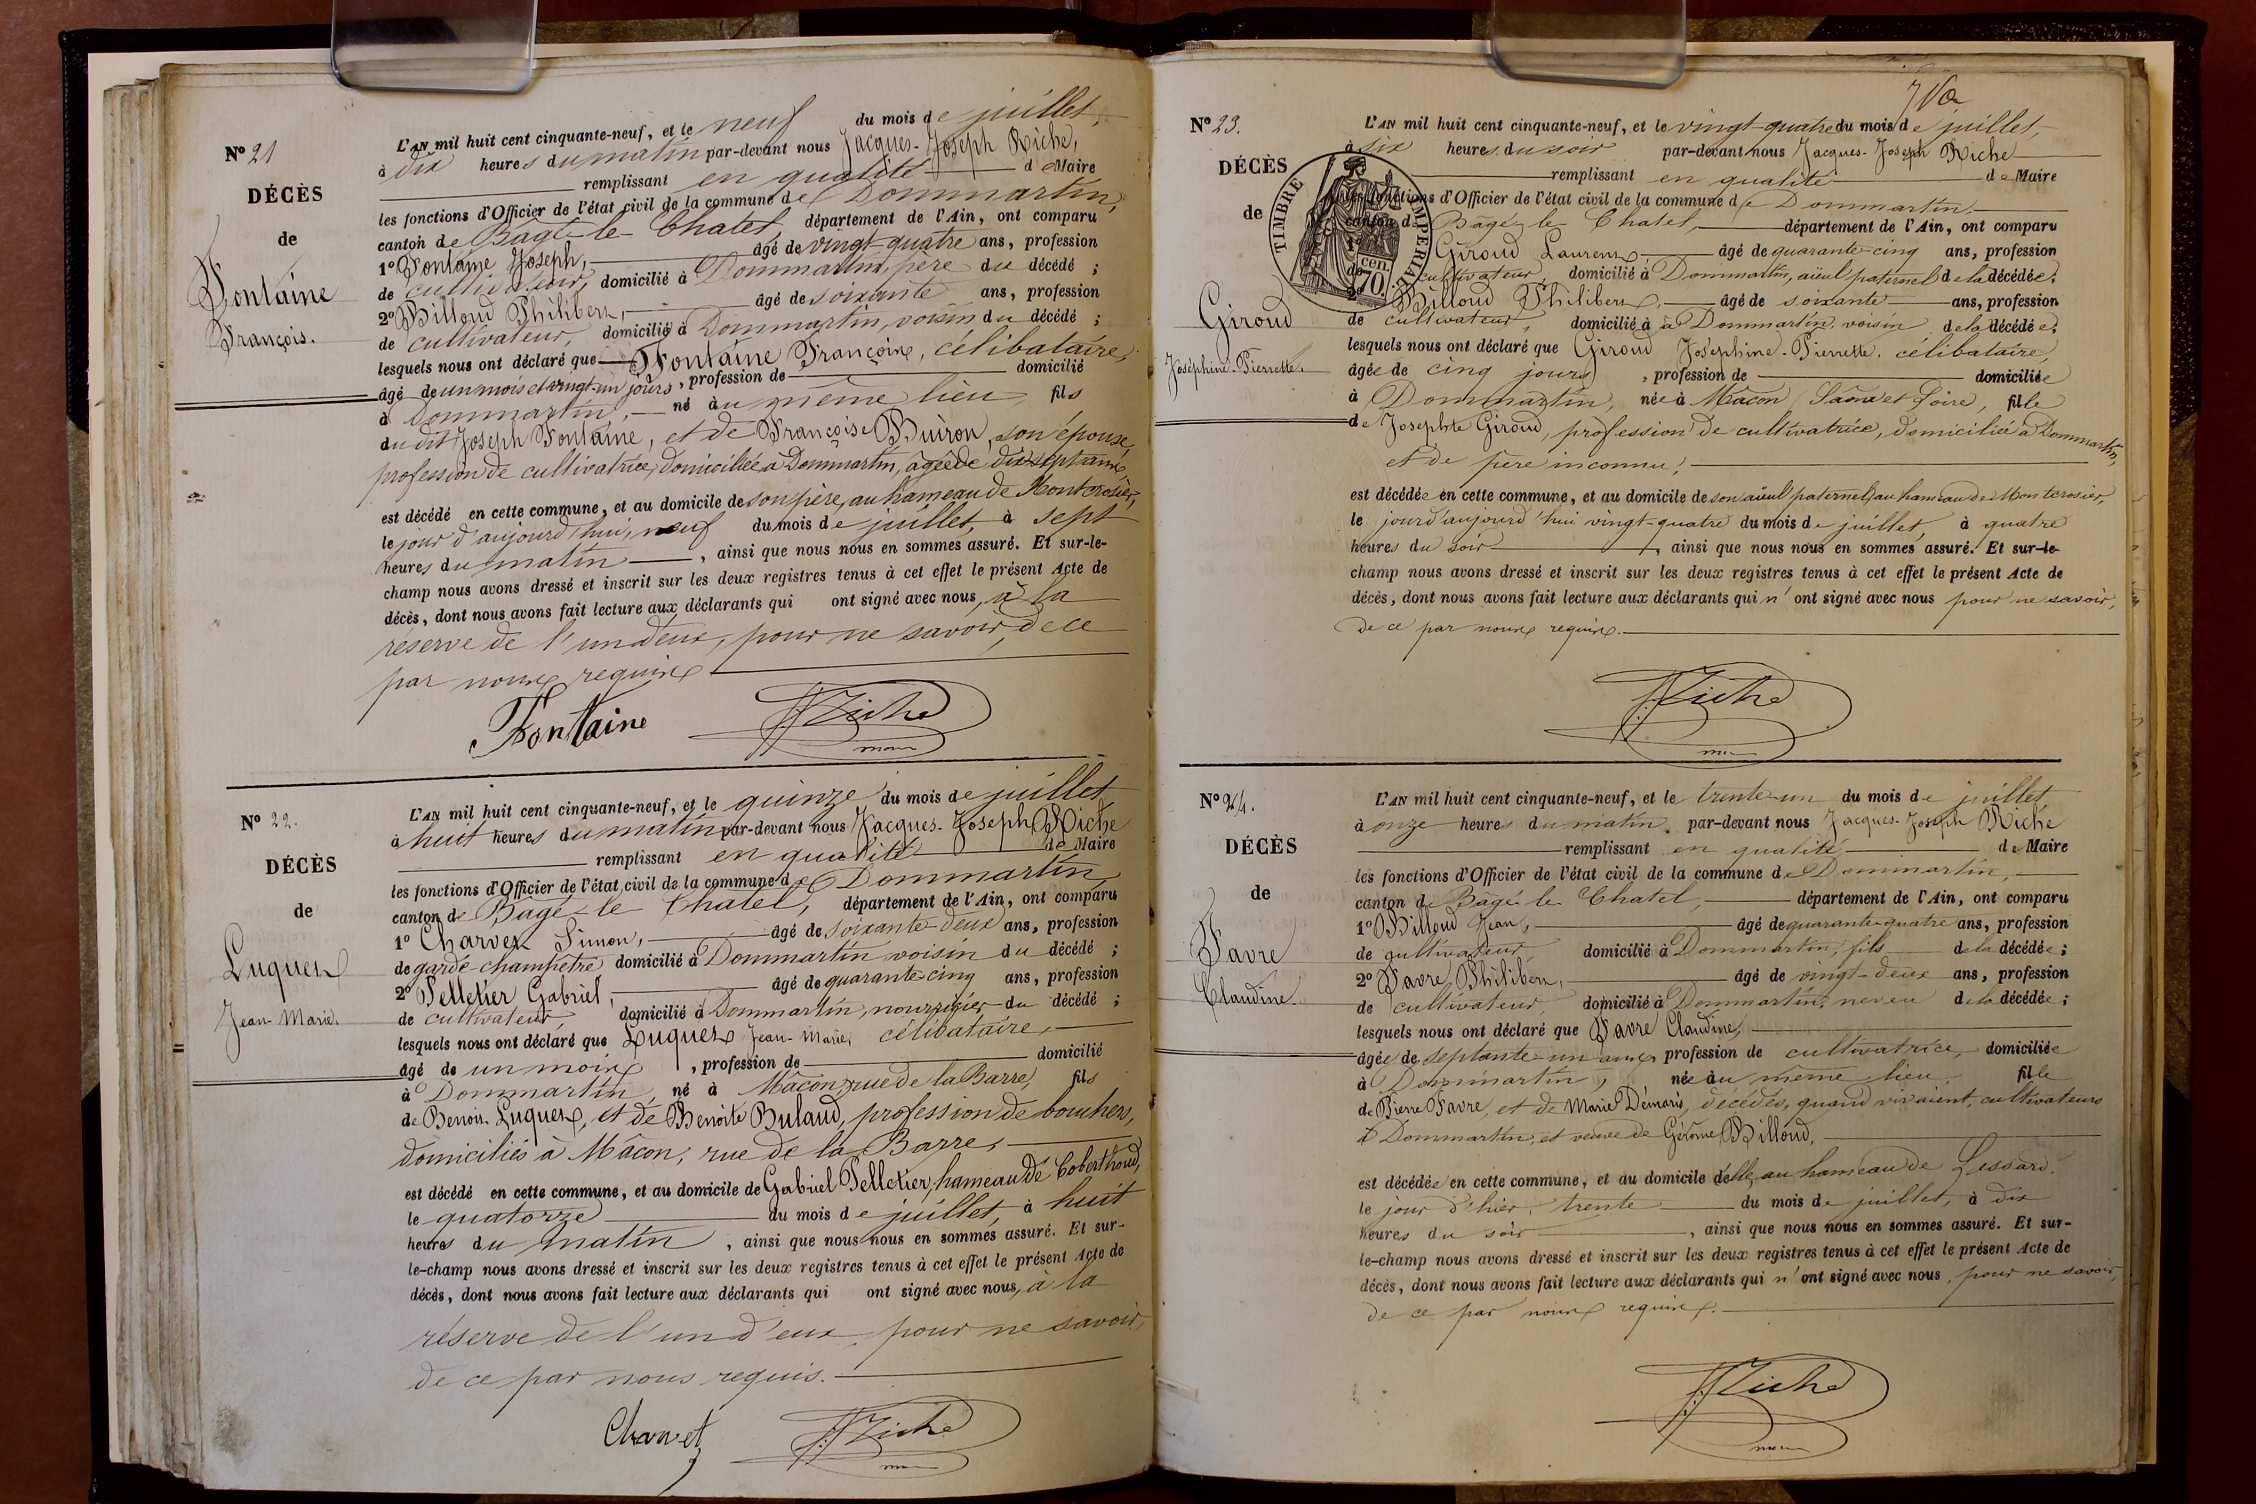 N° 21
DÉCÈS
de
Fontaine
François.
L'AN mil huit cent cinquante-neuf, et le neuf du mois de juillet,
à dix heures du matin par-devant nous Jacques-Joseph Riche,
remplissant en qualité de Maire
les fonctions d'Officier de l'état civil de la commune de Dommartin,
canton de Bâgé-le-Chatel, département de l'Ain, ont comparu
1° Fontaine Joseph, âgé de vingt-quatre ans, profession
de cultivateur, domicilié à Dommartin, père du décédé ;
2° Billoud Philibert, âgé de soixante ans, profession
de cultivateur, domicilié à Dommartin, voisin du décédé ;
lesquels nous ont déclaré que Fontaine François, célibataire,
âgé de un mois et vingt-un jours, profession de domicilié
à Dommartin, né au même lieu fils
du dit Joseph Fontaine, et de Françoise Buiron, son épouse,
profession de cultivatrice, domiciliée à Dommartin, âgée de dix-sept ans,
est décédé en cette commune, et au domicile de son père, au hameau de Montcrosier,
le jour d'aujourd'hui, neuf du mois de juillet, à sept
heures du matin, ainsi que nous nous en sommes assuré. Et sur-le-
champ nous avons dressé et inscrit sur les deux registres tenus à cet effet le présent Acte de
décès, dont nous avons fait lecture aux déclarants qui ont signé avec nous, à la
réserve de l'un d'eux, pour ne savoir, de ce
par nous requis
Fontaine JJRiche
maire
N° 22.
DÉCÈS
de
Luquet
Jean-Marie.
L'AN mil huit cent cinquante-neuf, et le quinze du mois de juillet
à huit heures du matin par-devant nous Jacques-Joseph Riche
remplissant en qualité de Maire
les fonctions d'Officier de l'état civil de la commune de Dommartin,
canton de Bâgé-le-Chatel, département de l'Ain, ont comparu
1° Charvet Simon, âgé de soixante-deux ans, profession
de garde champêtre domicilié à Dommartin voisin du décédé ;
2° Pelletier Gabriel, âgé de quarante-cinq ans, profession
de cultivateur, domicilié à Dommartin, nourricier du décédé ;
lesquels nous ont déclaré que Luquet Jean-Marie, célibataire,
âgé de un mois, profession de domicilié
à Dommartin, né à Mâcon, rue de la Barre, fils
de Benoit Luquet, et de Benoite Bulaud, profession de bouchers,
domiciliés à Mâcon, rue de la Barre,
est décédé en cette commune, et au domicile de Gabriel Pelletier, hameau de Coberthoud,
le quatorze du mois de juillet, à huit
heures du matin, ainsi que nous nous en sommes assuré. Et sur-
le-champ nous avons dressé et inscrit sur les deux registres tenus à cet effet le présent Acte de
décès, dont nous avons fait lecture aux déclarants qui ont signé avec nous, à la
réserve de l'un d'eux pour ne savoir,
de ce par nous requis.
Charvet JJRiche
maire
N° 23.
DÉCÈS
de
Giroud
Joséphine-Pierrette.
TIMBRE IMPERIAL
70 cen.
L'AN mil huit cent cinquante-neuf, et le vingt-quatre du mois de juillet,
à six heures du soir par-devant nous Jacques-Joseph Riche
remplissant en qualité de Maire
les fonctions d'Officier de l'état civil de la commune de Dommartin,
canton de Bâgé-le-Chatel, département de l'Ain, ont comparu
1° Giroud Laurent, âgé de quarante-cinq ans, profession
de cultivateur, domicilié à Dommartin, aïeul paternel de la décédée ;
2° Billoud Philibert, âgé de soixante ans, profession
de cultivateur, domicilié à à Dommartin, voisin de la décédée ;
lesquels nous ont déclaré que Giroud Joséphine-Pierrette, célibataire,
âgée de cinq jours, profession de domiciliée
à Dommartin, née à Mâcon Saône et Loire, fille
de Josephte Giroud, profession de cultivatrice, domiciliée à Dommartin,
et de père inconnu,
est décédée en cette commune, et au domicile de son aïeul paternel, au hameau de Montcrosier,
le jour d'aujourd'hui vingt-quatre du mois de juillet, à quatre
heures du soir, ainsi que nous nous en sommes assuré. Et sur-le-
champ nous avons dressé et inscrit sur les deux registres tenus à cet effet le présent Acte de
décès, dont nous avons fait lecture aux déclarants qui n'ont signé avec nous pour ne savoir,
de ce par nous requis.
JJRiche
maire
N° 24.
DÉCÈS
de
Favre
Claudine.
L'AN mil huit cent cinquante-neuf, et le trente-un du mois de juillet
à onze heures du matin, par-devant nous Jacques-Joseph Riche
remplissant en qualité de Maire
les fonctions d'Officier de l'état civil de la commune de Dommartin,
canton de Bâgé-le-Chatel, département de l'Ain, ont comparu
1° Billoud Jean, âgé de quarante-quatre ans, profession
de cultivateur, domicilié à Dommartin, fils de la décédée ;
2° Favre Philibert, âgé de vingt-deux ans, profession
de cultivateur, domicilié à Dommartin, neveu de la décédée ;
lesquels nous ont déclaré que Favre Claudine,
âgée de septante-un ans, profession de cultivatrice, domiciliée
à Dommartin, née au même lieu, fille
de Pierre Favre, et de Marie Démaris, décédés, quand vivaient, cultivateurs
à Dommartin, et veuve de Gérôme Billoud,
est décédée en cette commune, et au domicile d'elle, au hameau de Lessard,
le jour d'hier, trente du mois de juillet, à dix
heures du soir, ainsi que nous nous en sommes assuré. Et sur-
le-champ nous avons dressé et inscrit sur les deux registres tenus à cet effet le présent Acte de
décès, dont nous avons fait lecture aux déclarants qui n'ont signé avec nous, pour ne savoir,
de ce par nous requis.
JJRiche
maire